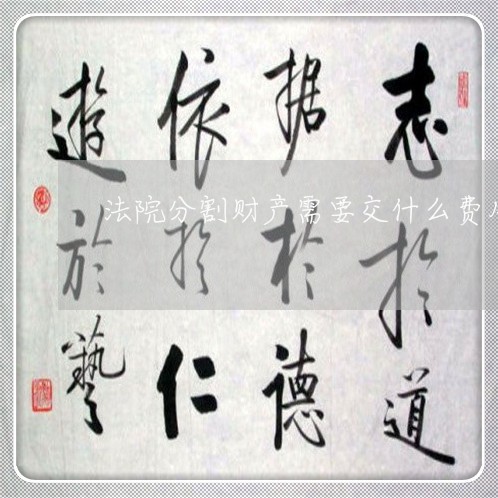 志於道
据於德
依於仁
遊於藝
法院分割财产需要交什么费